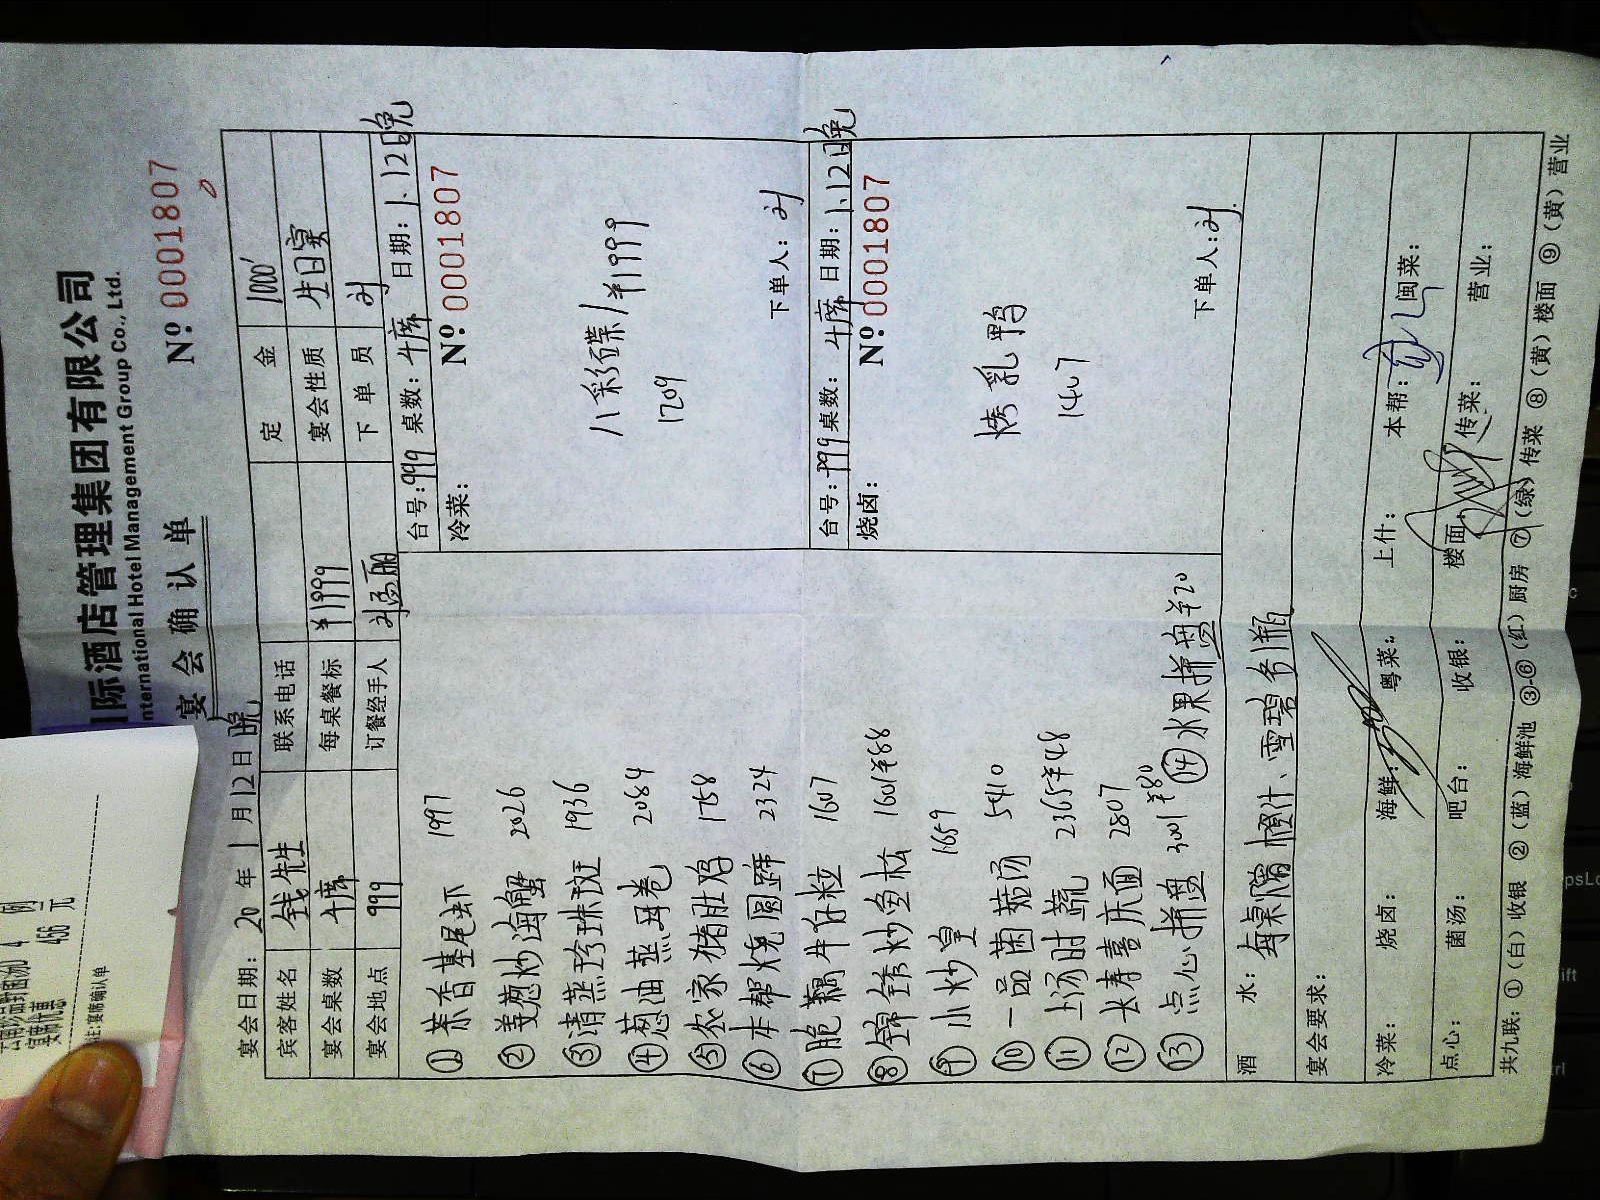 际酒店管理集团有限公司
International Hotel Management Group Co., Ltd.
宴会确认单
№ 0001807
宴会日期: 20 年 1 月 12 日 晚
宾客姓名 钱先生 联系电话 定金 1000
宴会桌数 4席 每桌餐标 ¥1999 宴会性质 生日宴
宴会地点 999 订餐经手人 下单员 刘
① 茶香基尾虾 1997
② 姜葱炒海蟹 2026
③ 清蒸珍珠斑 1936
④ 葱油蒸丹卷 2084
⑤ 农家猪肚鸡 1758
⑥ 本帮烧圆蹄 2324
⑦ 脆藕牛仔粒 1607
⑧ 锦绣炒鱼松 1601 ¥88
⑨ 小炒皇 1659
⑩ 一品菌菇汤 5410
⑪ 上汤时蔬 2365 ¥48
⑫ 长寿喜庆面 2807
⑬ 点心拼盘 3001 ¥80 ⑭ 水果拼盘 ¥20
台号: 999 桌数: 4席 日期: 1.12日晚
冷菜: № 0001807
八彩碟 / ¥1999
1209
下单人: 刘
台号: 999 桌数: 4席 日期: 1.12日晚
烧卤: № 0001807
烤乳鸭
1407
下单人: 刘.
酒水: 每桌赠橙汁、雪碧各1瓶
宴会要求:
冷菜: 烧卤: 海鲜: 粤菜: 上什: 本帮: 闽菜:
点心: 菌汤: 吧台: 收银: 楼面: 传菜: 营业:
共九联: ①(白)收银 ②(蓝)海鲜池 ③-⑥(红)厨房 ⑦(绿)传菜 ⑧(黄)楼面 ⑨(黄)营业
4 例
宴席优惠 456 元
注:宴席确认单